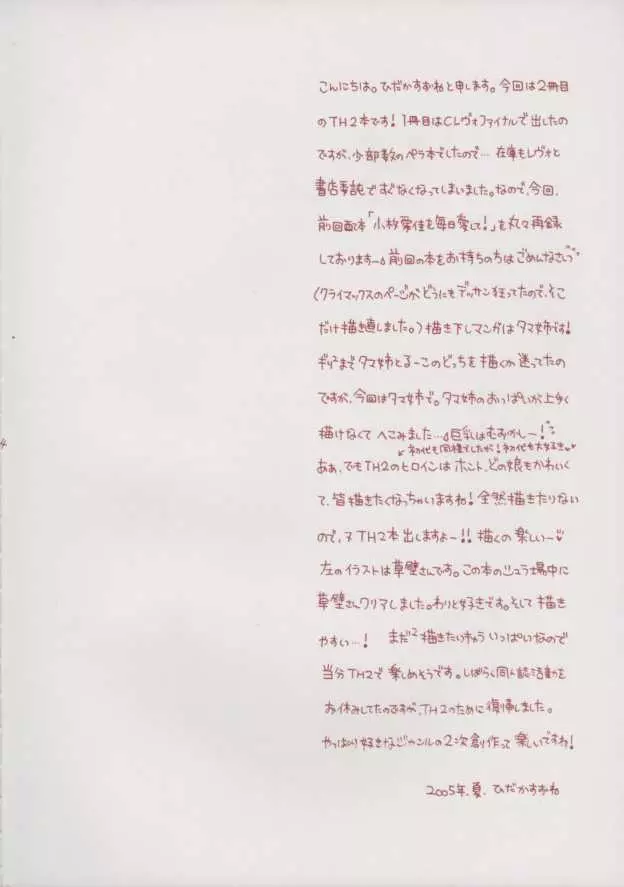 こんにちは。ひだかすずねと申します。今回は2冊目
のTH2本です！1冊目はCLヴォファイナルで出したの
ですが、少部数のペラ本でしたので… 在庫もレヴォと
書店委託ですぐなくなってしまいました。なので、今回、
前回配本「小牧愛佳を毎日愛して！」を丸々再録
しております〜。前回の本をお持ちの方はごめんなさいっ
（クライマックスのページがどうにもデッサン狂ってたので、そこ
だけ描き直しました。）描き下しマンガはタマ姉です！
ギリ²までタマ姉とる〜このどっちを描くか迷ってたの
ですが、今回はタマ姉で。タマ姉のおっぱいが上手く
描けなくてへこみました…。巨乳はむずかし〜！
初代も同様でしたが！初代も大好き♥
ああ、でもTH2のヒロインはホント、どの娘もかわいく
て、皆描きたくなっちゃいますね！全然描きたりない
ので、ヌTH2本出しますよ〜!!描くの楽しい〜♥
左のイラストは草壁さんです。この本のシュラ場中に
草壁さんクリアしました。わりと好きです。そして描き
やすい…！ まだ²描きたいキャラいっぱいなので
当分TH2で楽しめそうです。しばらく同人誌活動を
お休みしてたのですが、TH2のために復帰しました。
やっぱり好きなジャンルの2次創作って楽しいですね！
2005年.夏. ひだかすずね